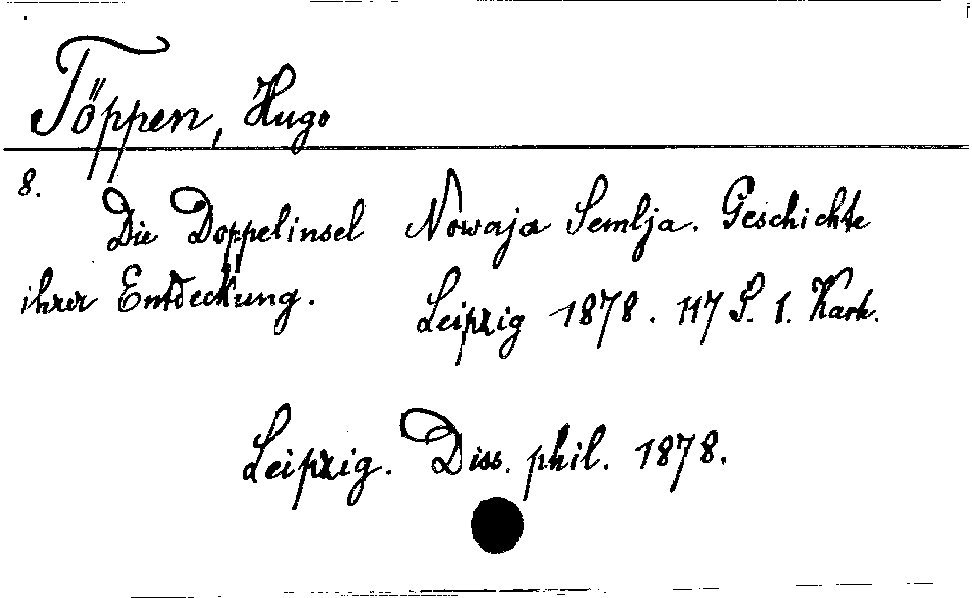 Töppen, Hugo
8.
Die Doppelinsel Nowaja Semlja. Geschichte
ihrer Entdeckung. Leipzig 1878. 117 S. 1. Kart.
Leipzig. Diss. phil. 1878.